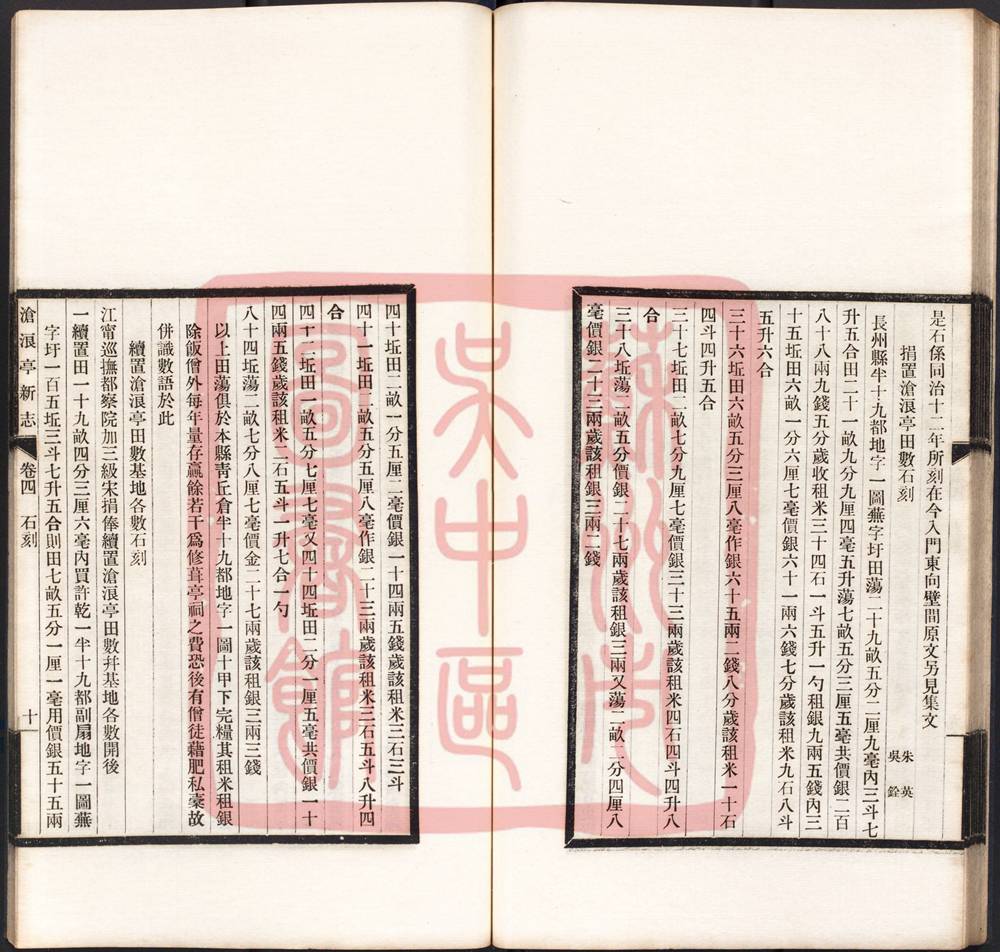 是石係同治十二年所刻在今入門東向壁間原文另見集文
朱英
吳銓
捐置滄浪亭田數石刻
長州縣半十九都地字一圖蕪字圩田蕩二十九畝五分二厘九毫內三斗七
升五合田二十一畝九分九厘四毫五升蕩七畝五分三厘五毫共價銀二百
八十八兩九錢五分歲收租米三十四石一斗五升一勺租銀九兩五錢內三
十五坵田六畝一分六厘七毫價銀六十一兩六錢七分歲該租米九石八斗
五升六合
三十六坵田六畝五分三厘八毫作銀六十五兩二錢八分歲該租米一十石
四斗四升五合
三十七坵田二畝七分九厘七毫價銀三十三兩歲該租米四石四斗四升八
合
三十八坵蕩二畝五分價銀二十七兩歲該租銀三兩又蕩二畝二分四厘八
毫價銀二十三兩歲該租銀三兩二錢
四十坵田二畝一分五厘二毫價銀一十四兩五錢歲該租米三石三斗
四十一坵田二畝五分五厘八毫作銀二十三兩歲該租米三石五斗八升四
合
四十二坵田一畝五分七厘七毫又四十四坵田二分一厘五毫共價銀一十
四兩五錢歲該租米二石五斗一升七合一勺
八十四坵蕩二畝七分八厘七毫價金二十七兩歲該租銀三兩三錢
以上田蕩俱於本縣青丘倉半十九都地字一圖十甲下完糧其租米租銀
除飯僧外每年量存贏餘若干爲修葺亭祠之費恐後有僧徒藉肥私橐故
併識數語於此
續置滄浪亭田數基地各數石刻
江寧巡撫都察院加三級宋捐俸續置滄浪亭田數幷基地各數開後
一續置田一十九畝四分三厘六毫內買許乾一半十九都副扇地字一圖蕪
字圩一百五坵三斗七升五合則田七畝五分一厘一毫用價銀五十五兩
滄浪亭新志
卷四 石刻
十
蘇州市
吳中區
圖書館